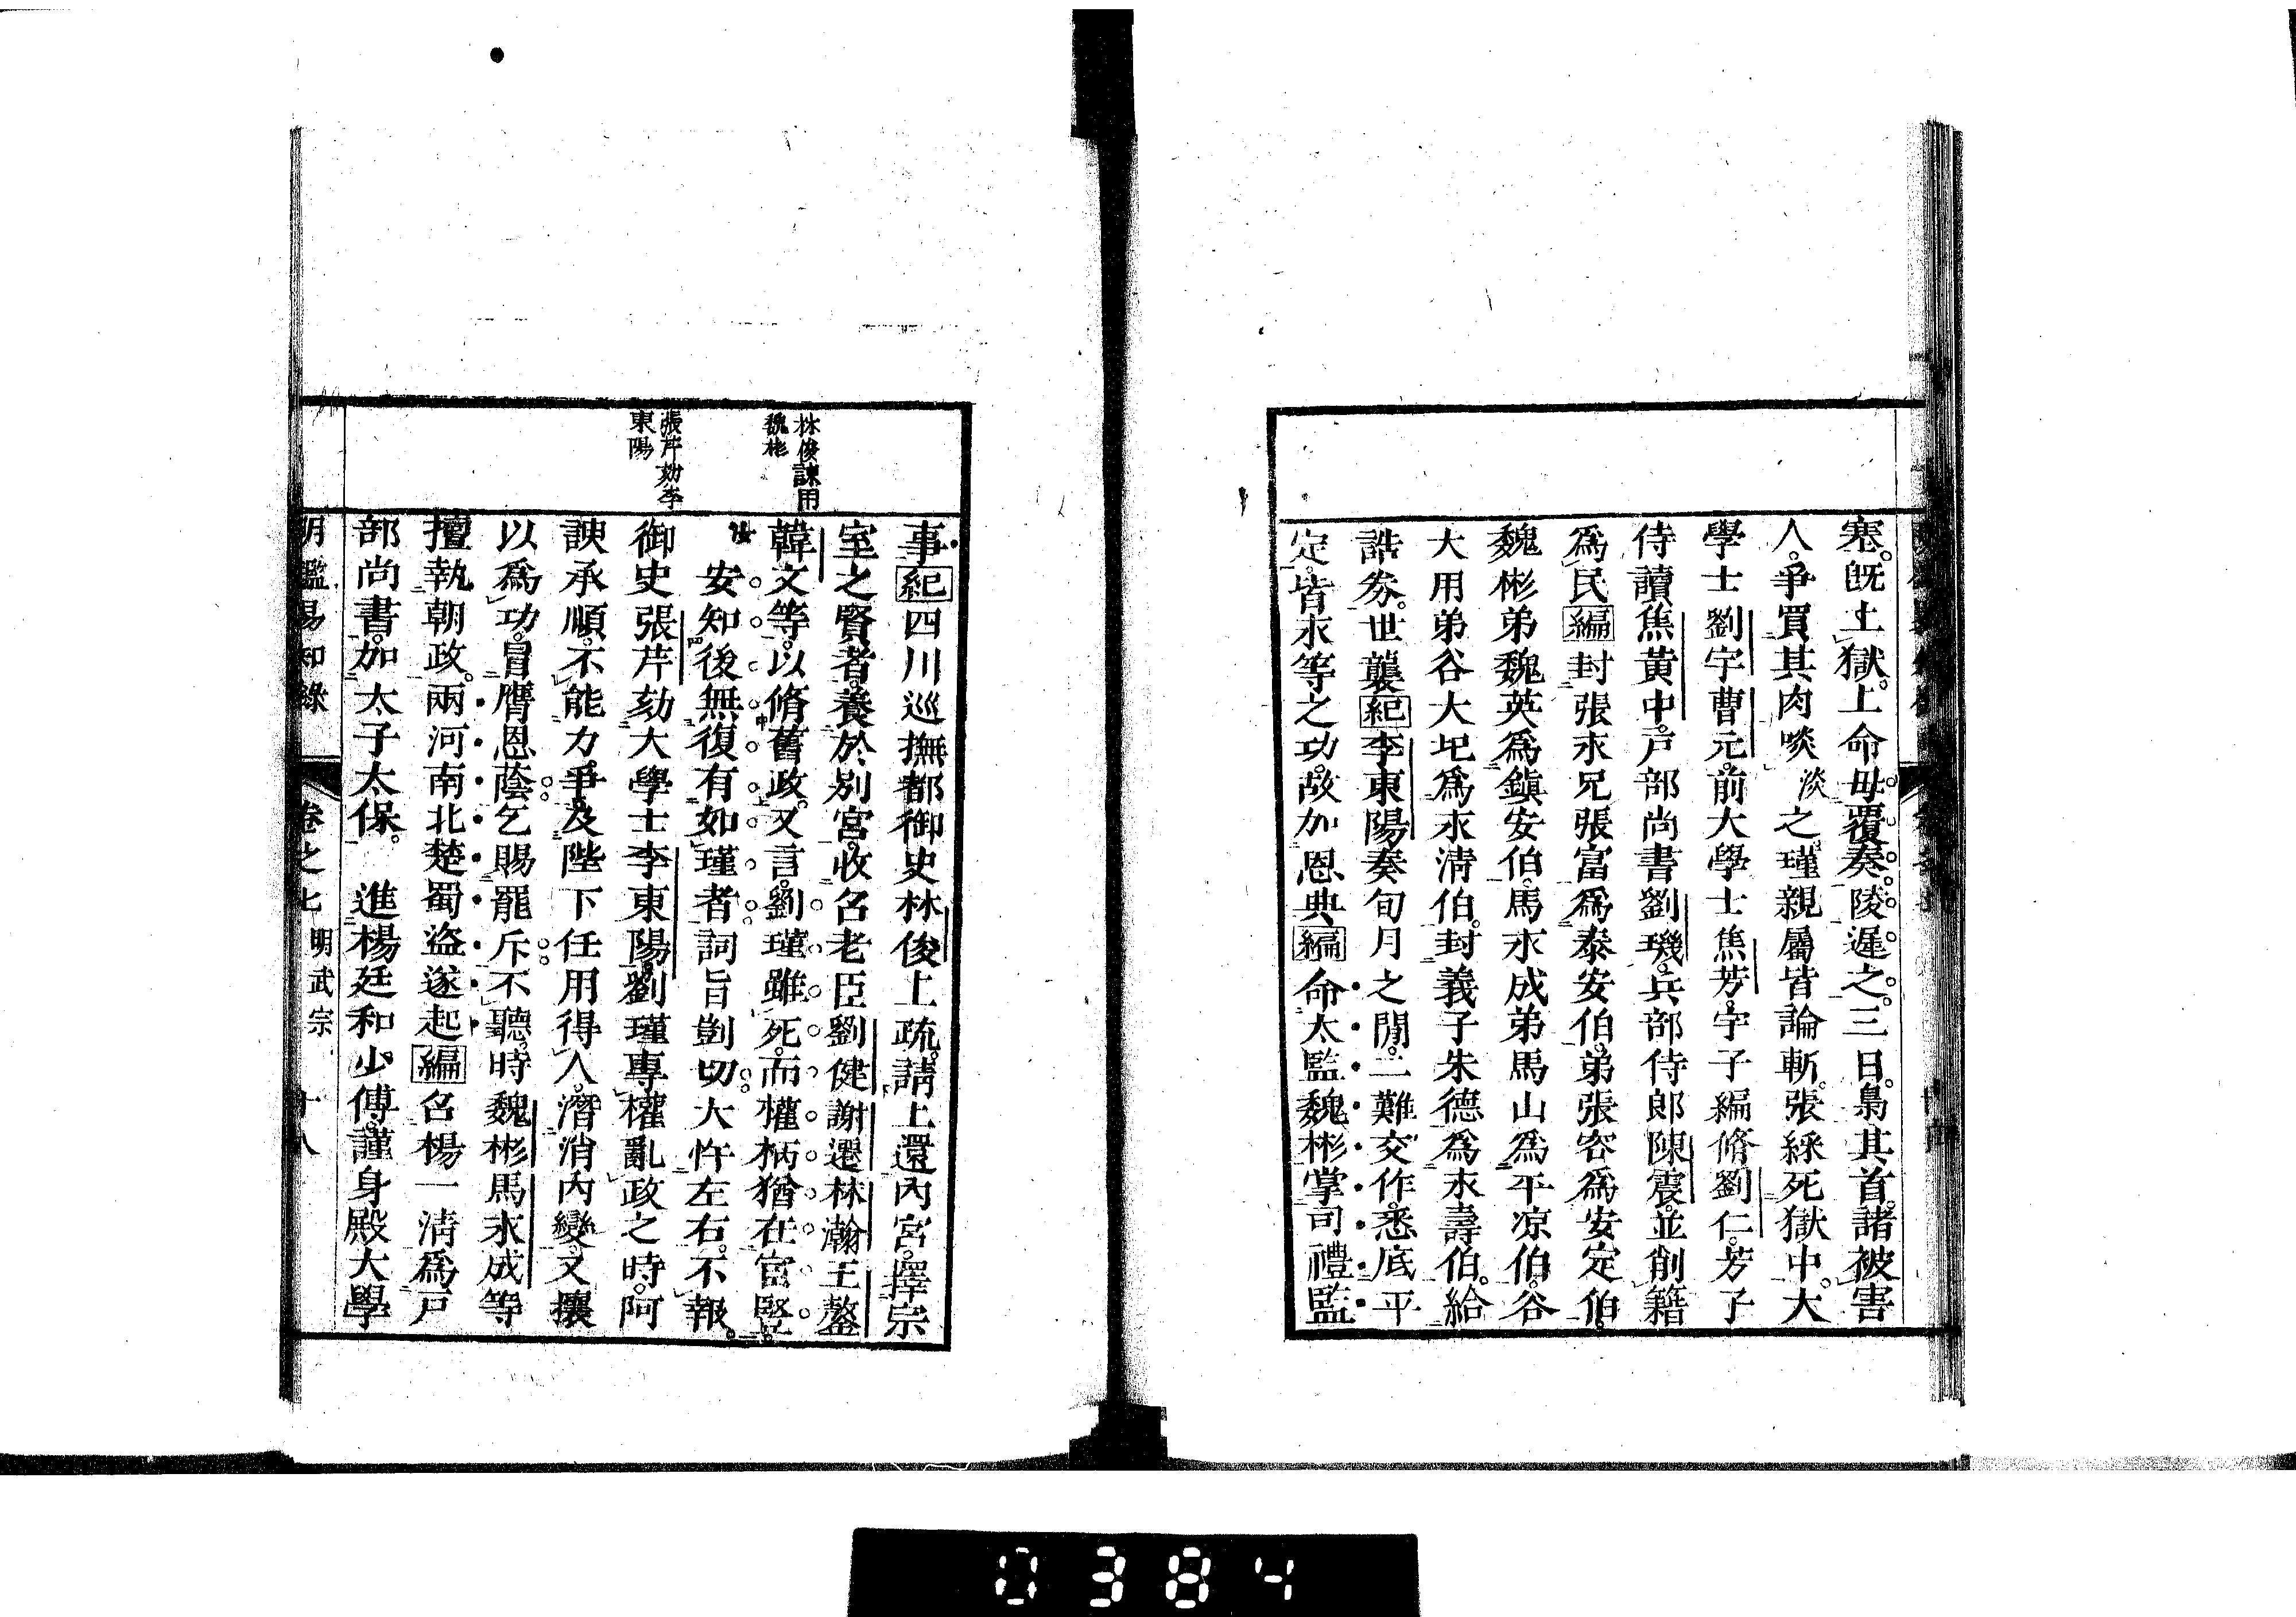 塞。既上獄。上命毋覆奏。陵遲之。三日。梟其首。諸被害
人。爭買其肉啖淡之。瑾親屬皆論斬。張綵死獄中。大
學士劉宇曹元。前大學士焦芳。宇子編脩劉仁。芳子
侍讀焦黃中。戶部尚書劉璣。兵部侍郎陳震。並削籍
爲民編封張永兄張富爲泰安伯。弟張容爲安定伯。
魏彬弟魏英爲鎮安伯。馬永成弟馬山爲平凉伯。谷
大用弟谷大玘爲永清伯。封義子朱德爲永壽伯。給
誥券。世襲紀李東陽奏旬月之閒。二難交作。悉底平
定。皆永等之功。故加恩典編命太監魏彬掌司禮監
事紀四川巡撫都御史林俊上疏。請上還內宮。擇宗
室之賢者。養於別宮。收召老臣劉健謝遷林瀚王鏊
韓文等。以脩舊政。又言。劉瑾雖死。而權柄猶在宦豎。
安知後無復有如瑾者。詞旨剴切。大忤左右。不報。
御史張芹劾大學士李東陽。劉瑾專權亂政之時。阿
諛承順。不能力爭。及陛下任用得人。潛消內變。又攘
以爲功。冒膺恩蔭。乞賜罷斥。不聽。時魏彬馬永成等
擅執朝政。兩河南北楚蜀盜遂起編召楊一清爲戶
部尚書。加太子太保。 進楊廷和少傅。謹身殿大學
林俊諫用
魏彬
張芹劾李
東陽
明鑑易知錄 卷之七 明武宗 十八
0384